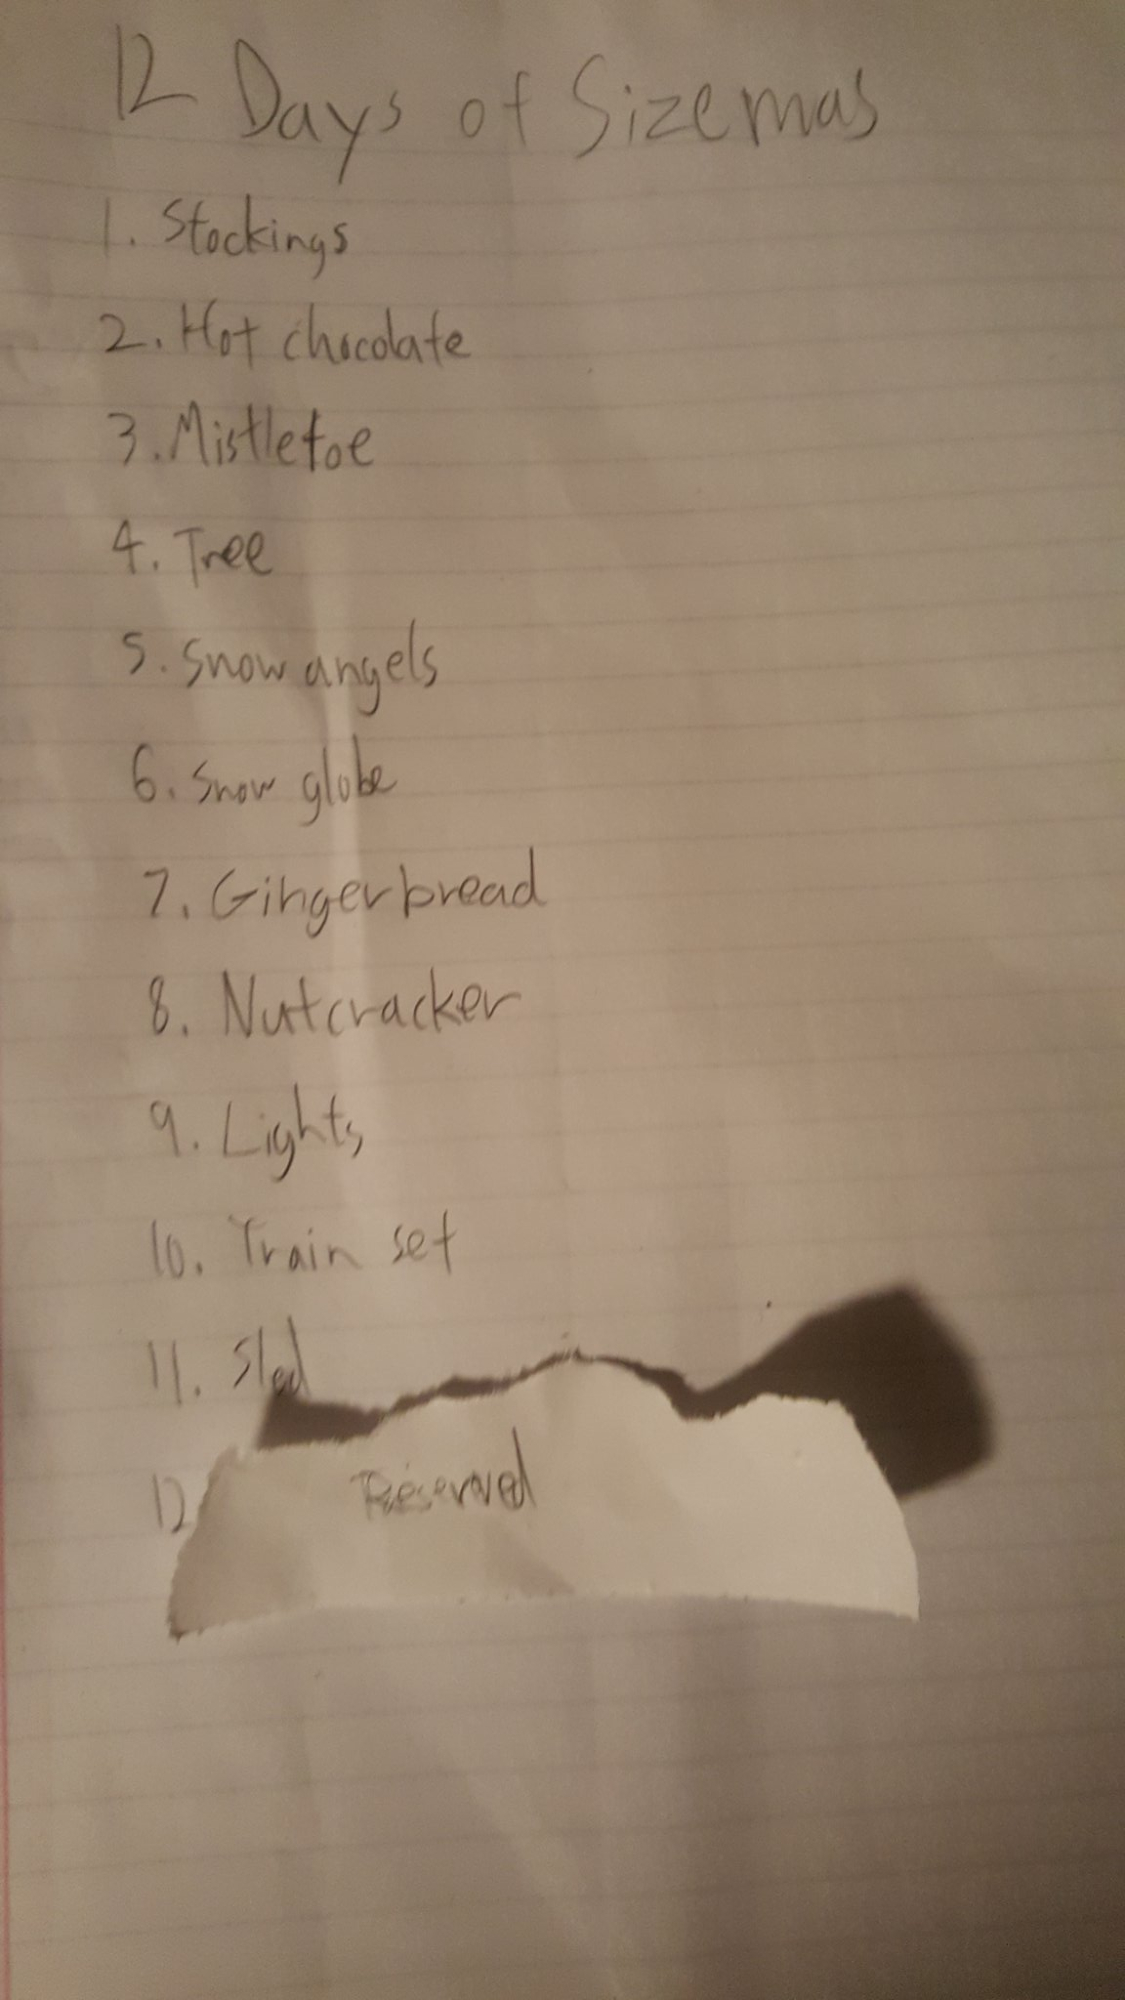 12 Days of Sizemas
1. Stockings
2. Hot chocolate
3. Mistletoe
4. Tree
5. Snow angels
6. Snow globe
7. Gingerbread
8. Nutcracker
9. Lights
10. Train set
11. Sled
12
Reserved